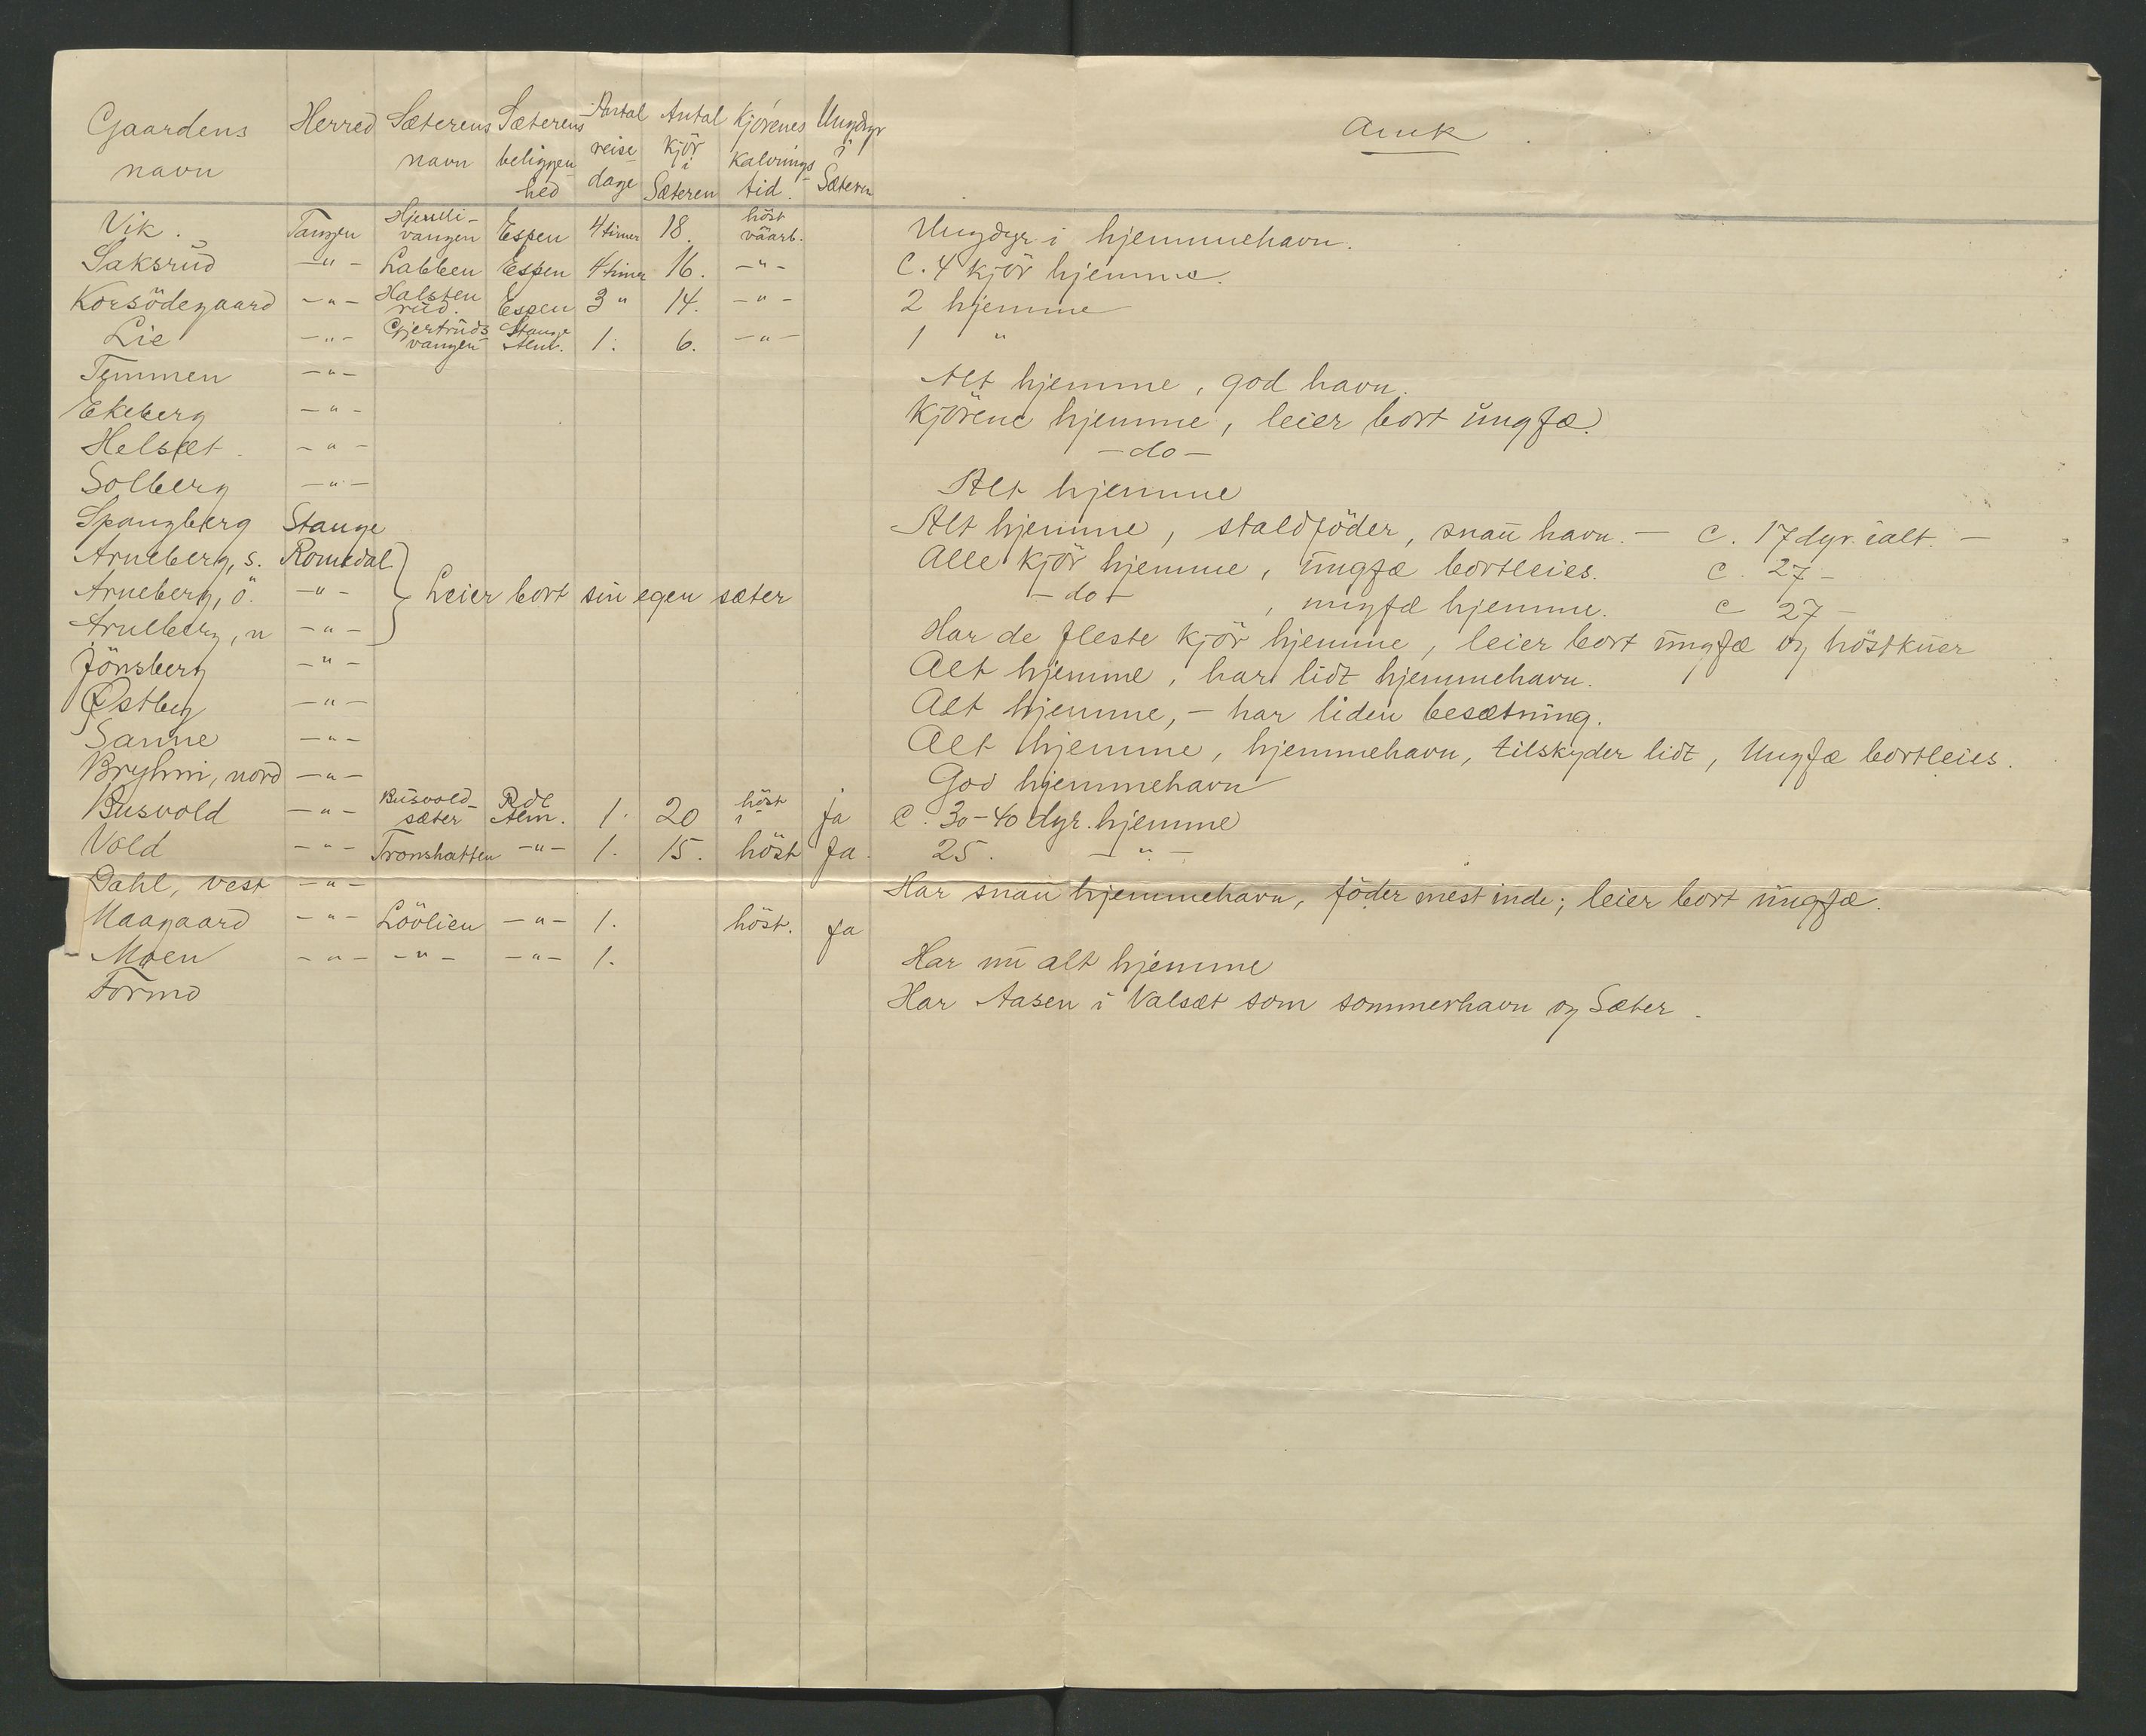 Gaardens navn | Herred | Sæterens navn | Sæterens beliggenhed | Antal reisedage | Antal kjör i Sæteren | Kjörenes kalvningstid | Ungdyr i Sæteren | Amk
Vik. | Tangen | Hjemlivangen | Espen | 4 timer | 18. | höst vårb. | | Ungdyr i hjemmehavn.
Saksrud | -"- | Labben | Espen | 4 timer | 16. | -"- | | C. 4 kjör hjemme.
Korsödegaard | -"- | Halstenrud. | Espen | 3 " | 14. | -"- | | 2 hjemme
Lie | -"- | Gjertrudsvangen | Stange Alm. | 1. | 6. | -"- | | 1 "
Temmen | -"- | | | | | | | Alt hjemme, god havn.
Ekeberg | -"- | | | | | | | Kjörene hjemme, leier bort ungfæ.
Helsæt. | -"- | | | | | | | -do-
Solberg | -"- | | | | | | | Alt hjemme
Spangberg | Stange | | | | | | | Alt hjemme, staldföder, snau havn. - C. 17 dyr ialt. -
Arneberg, s. | Romedal | Leier bort sin egen sæter | Alle kjör hjemme, ungfæ bortleies. C. 27 -
Arneberg, ö. | -"- | | | | | | | -do- , ungfæ hjemme. C 27 -
Arneberg, n | -"- | | | | | | | Har de fleste kjör hjemme, leier bort ungfæ og höstkuer
Jönsberg | -"- | | | | | | | Alt hjemme, har lidt hjemmehavn.
Østby | -"- | | | | | | | Alt hjemme, - har liden besætning.
Sanne | -"- | | | | | | | Alt hjemme, hjemmehavn, tilskyder lidt, Ungfæ bortleies.
Bryhni, nord | -"- | | | | | | | God hjemmehavn
Busvold | -"- | Busvoldsæter | Rdl Alm. | 1. | 20 | höst | ja | C. 30-40 dyr. hjemme
Vold | -"- | Tronshatten | -"- | 1. | 15. | höst | Ja. | 25. -"-
Dahl, vest | -"- | | | | | | | Har snau hjemmehavn, föder mest inde; leier bort ungfæ.
Maagaard | -"- | Lövlien | -"- | 1. | | höst. | Ja
Moen | -"- | -"- | -"- | 1. | | | | Har nu alt hjemme
Formo | | | | | | | | Har Aasen i Valsæt som sommerhavn og Sæter.